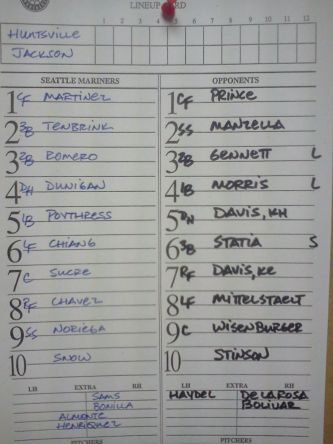 LINEUP CARD
1 2 3 4 5 6 7 8 9 10 11 12
HUNTSVILLE
JACKSON
SEATTLE MARINERS
1 CF MARTINEZ
2 3B TENBRINK
3 2B ROMERO
4 DH DUNIGAN
5 1B POYTHRESS
6 LF CHIANG
7 C SUCRE
8 RF CHAVEZ
9 SS NORIEGA
10 SNOW
LH EXTRA RH
SAMS
BONILLA
ALMONTE
HENRIQUEZ
PITCHERS
OPPONENTS
1 CF PRINCE
2 SS MANZELLA
3 2B GENNETT L
4 1B MORRIS L
5 DH DAVIS, KH
6 3B STATIA S
7 RF DAVIS, KE
8 LF MITTELSTAEDT
9 C WISENBURGER
10 STINSON
LH EXTRA RH
HAYDEL DE LA ROSA
BOLIVAR
PITCHERS